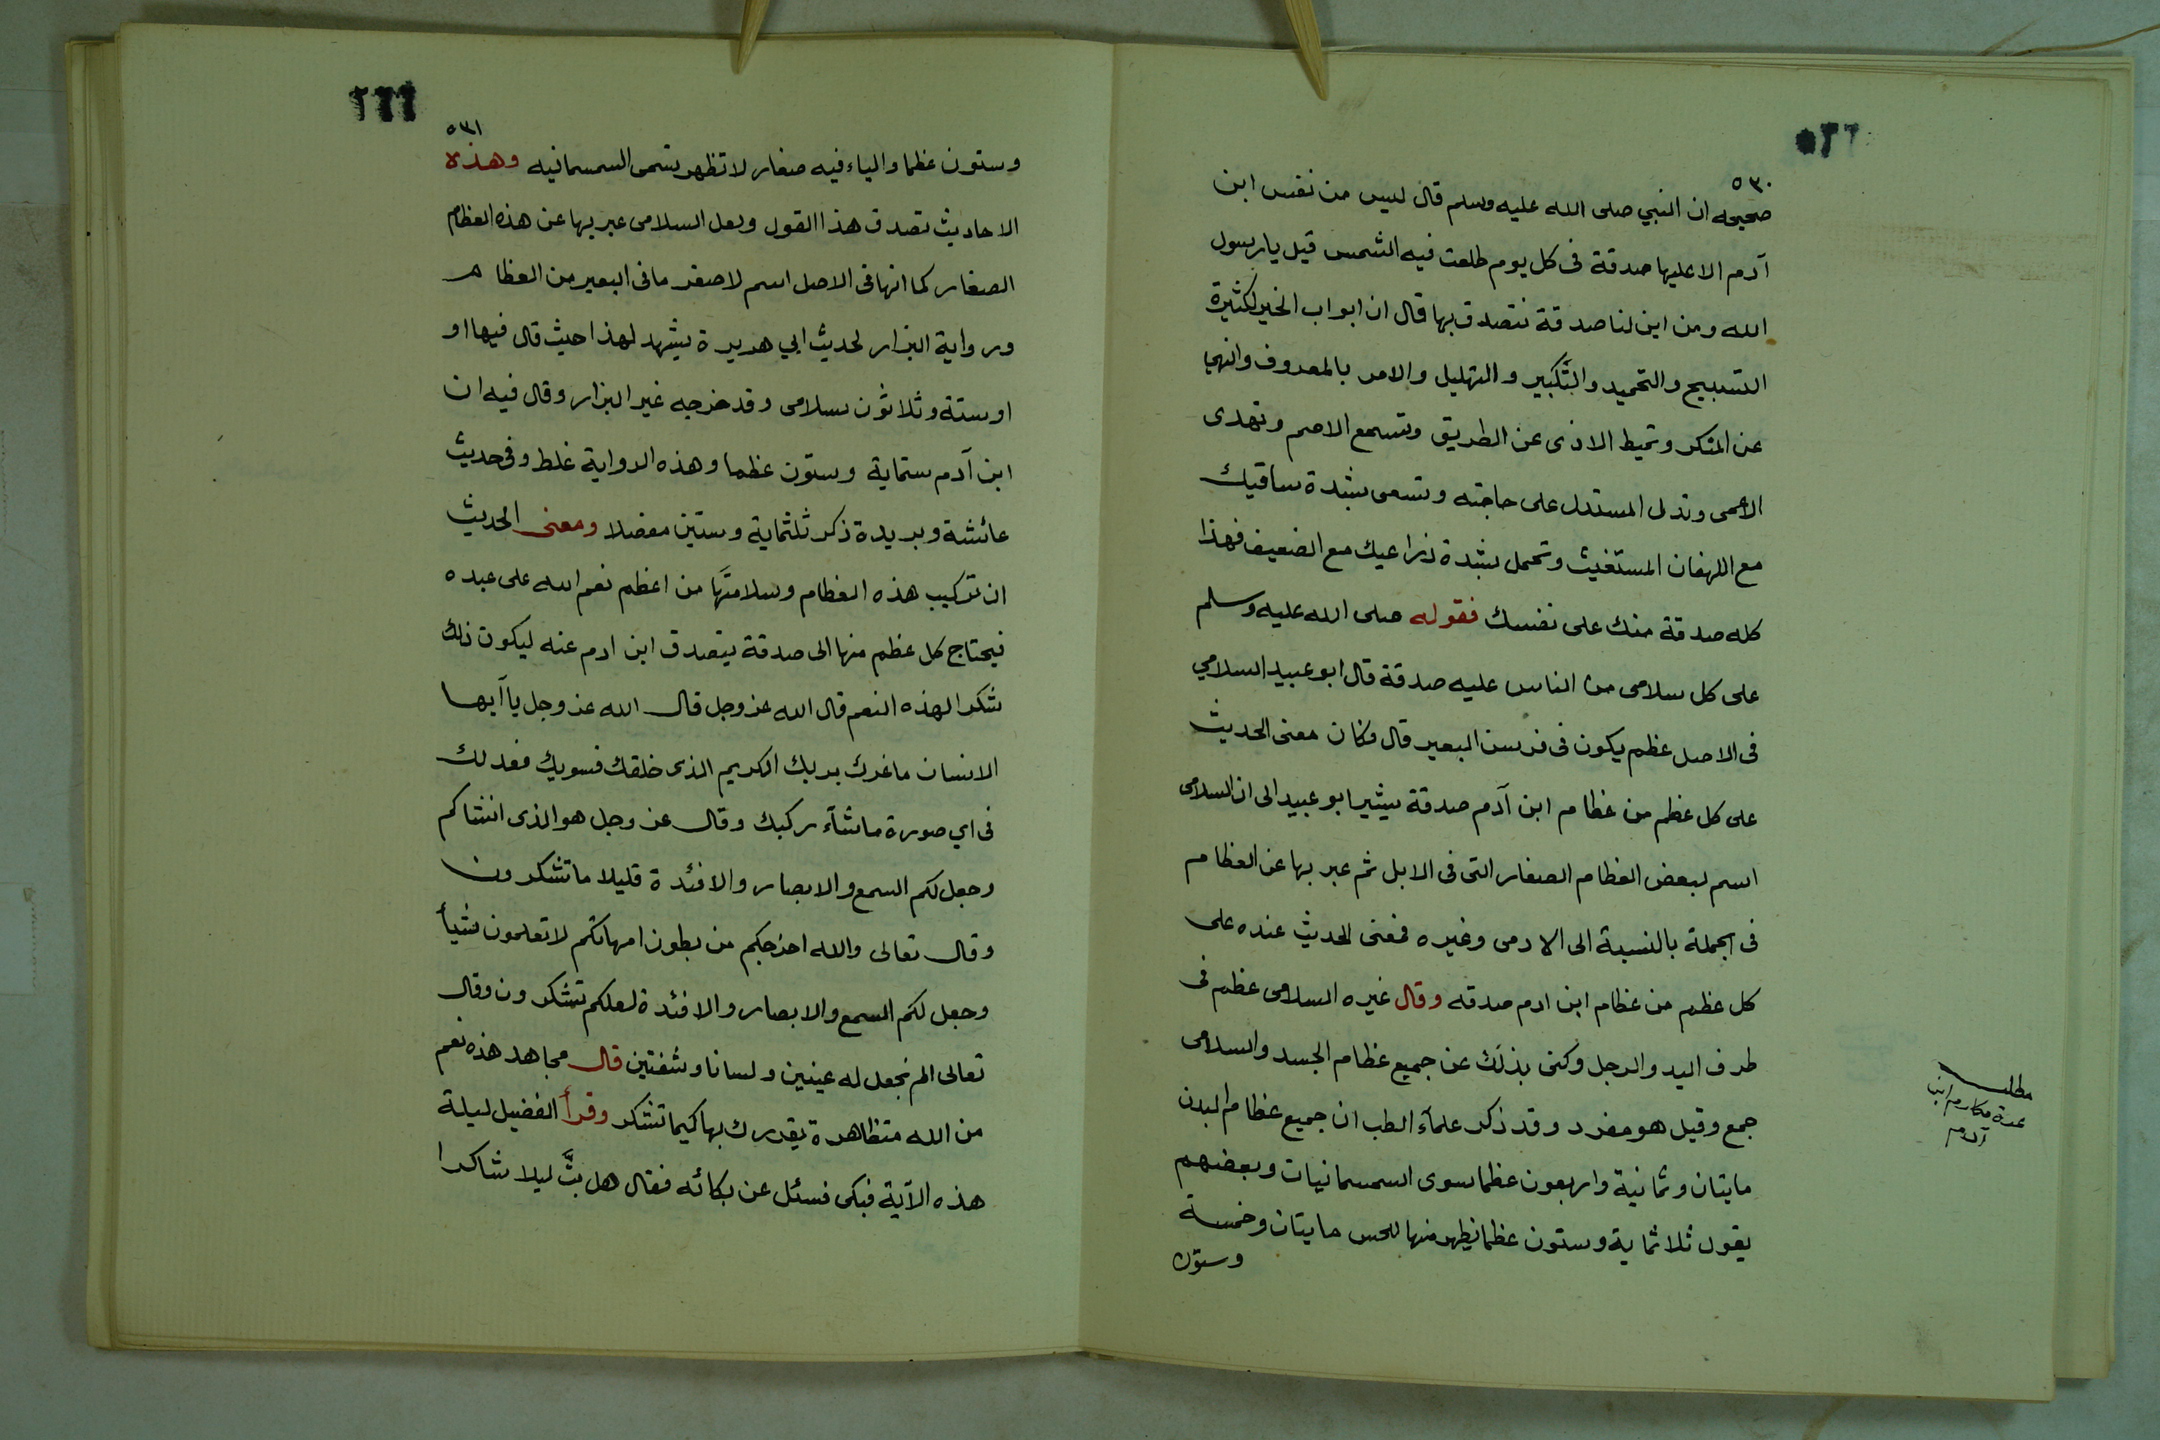 ٥٣٠
صحيحه ان النبي صلى الله عليه وسلم قال ليس من نفس ابن
آدم الا عليها صدقة فى كل يوم طلعت فيه الشمس قيل يا رسول
الله ومن اين لنا صدقة نتصدق بها قال ان ابواب الخير لكثيرة
التسبيح والتحميد والتكبير والتهليل والامر بالمعروف والنهي
عن المنكر وتميط الاذى عن الطريق وتسمع الاصم وتهدى
الاعمى وتدل المستدل على حاجته وتسعى بشدة ساقيك
مع اللهفان المستغيث وتحمل بشدة ذراعيك مع الضعيف فهذا
كله صدقة منك على نفسك فقوله صلى الله عليه وسلم
على كل سلامى من الناس عليه صدقة قال ابو عبيد السلامي
فى الاصل عظم يكون فى فرسن البعير قال فكان معنى الحديث
على كل عظم من عظام ابن آدم صدقة يشير ابو عبيد الى ان السلامى
اسم لبعض العظام الصغار التى فى الابل ثم عبر بها عن العظام
فى الجملة بالنسبة الى الادمى وغيره فمعنى الحديث عنده على
كل عظم من عظام ابن ادم صدقه وقال غيره السلامى عظم فى
طرف اليد والرجل وكنى بذلك عن جميع عظام الجسد والسلامى
جمع وقيل هو مفرد وقد ذكر علمآء الطب ان جميع عظام البدن
مايتان وثمانية واربعون عظما سوى السمسمانيات وبعضهم
يقول ثلاثماية وستون عظما يظهر منها للحس مايتان وخمسة
وستون
مطلب
عدة
ابن
آدم
٥٣١
وستون عظما والياء فيه صغار لا تظهر تسمى السمسمانيه وهذه
الاحاديث تصدق هذا القول ولعل السلامى عبر بها عن هذه العظام
الصغار كما انها فى الاصل اسم لاصغر ما فى البعير من العظام
ورواية البزار لحديث ابي هريرة يشهد لهذا حيث قال فيها او
او ستة وثلاثون سلامى وقد خرجه غير البزار وقال فيه ان
ابن آدم ستماية وستون عظما وهذه الرواية غلط وفى حديث
عائشة وبريدة ذكر ثلثماية وستين مفصلا ومعنى الحديث
ان تركيب هذه العظام وسلامتها من اعظم نعم الله على عبده
فيحتاج كل عظم منها الى صدقة يتصدق ابن ادم عنه ليكون ذلك
شكرا لهذه النعم قال الله عز وجل قال الله عز وجل يا آيها
الانسان ما غرك بربك الكريم الذى خلقك فسويك فعدلك
فى اي صورة ما شآء ركبك وقال عز وجل هو الذى انشاكم
وجعل لكم السمع والابصار والافئدة قليلا ما تشكرون
وقال تعالى والله اخرجكم من بطون امهاتكم لا تعلمون شيأ
وجعل لكم السمع والابصار والافئدة لعلكم تشكرون وقال
تعالى الم نجعل له عينين ولسانا وشفتين قال مجاهد هذه نعم
من الله متظاهرة يقررك بها كيما تشكر وقرأ الفضيل ليلة
هذه الآية فبكى فسئل عن بكائه فقال هل بتّ ليلا شاكرا